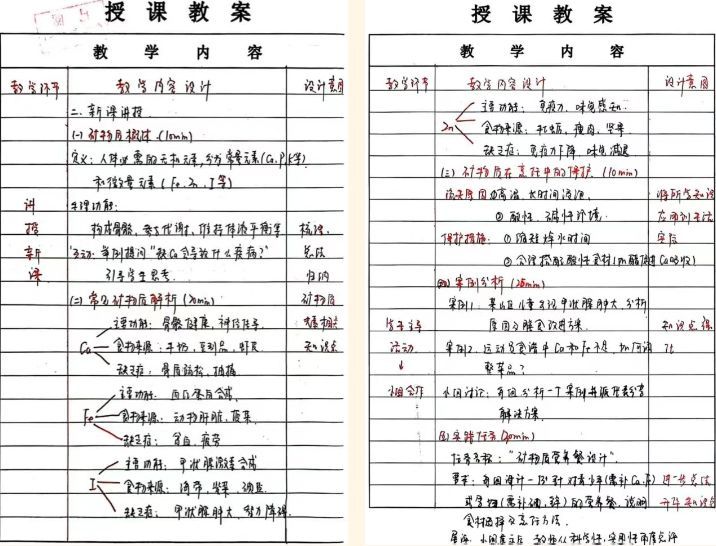 授课教案
教学内容
教学环节 教学内容设计 设计意图
二、新课讲授
(一) 矿物质概述 (10min)
定义：人体必需的无机元素，分为常量元素(Ca、P、K等)
和微量元素 (Fe、Zn、I等)
讲 生理功能：
授 构成骨骼，参与代谢，维持体液平衡等 梳理、
新 互动：举例提问“缺Ca会导致什么疾病？” 总结
课 引导学生思考 归纳
(二) 常见矿物质解析 (20min) 矿物质
主要功能：骨骼健康，神经传导
Ca 食物来源：牛奶，豆制品，虾皮 知识点
缺乏症：骨质疏松、抽搐
主要功能：血红蛋白合成
Fe 食物来源：动物肝脏，菠菜
缺乏症：贫血，疲劳
主要功能：甲状腺激素合成
I 食物来源：海带，紫菜，碘盐
缺乏症：甲状腺肿大、智力障碍
授课教案
教学内容
教学环节 教学内容设计 设计意图
主要功能：免疫力、味觉感知
Zn 食物来源：牡蛎、瘦肉、坚果
缺乏症：免疫力下降、味觉减退
(三) 矿物质在烹饪中的保护 (10min)
流失原因：①高温、长时间浸泡 将所学知识
②酸性、碱性环境 应用到生活
保护措施：①缩短焯水时间 实际
②合理搭配酸性食材 (如醋促进Ca吸收)
(四) 案例分析
案例1：某山区儿童出现甲状腺肿大，分析
学生主导 原因及膳食改进方案
活动 案例2：运动员食谱中Ca和Fe不足，如何调
整菜品？
小组合作 小组讨论：每组分析一个案例并派代表分享
解决方案
实践任务
任务名称：“矿物质营养餐设计”
要求：每组设计一份针对青少年(需补Ca、Fe) 进一步总结
的营养餐，说明
食物选择及烹饪方法